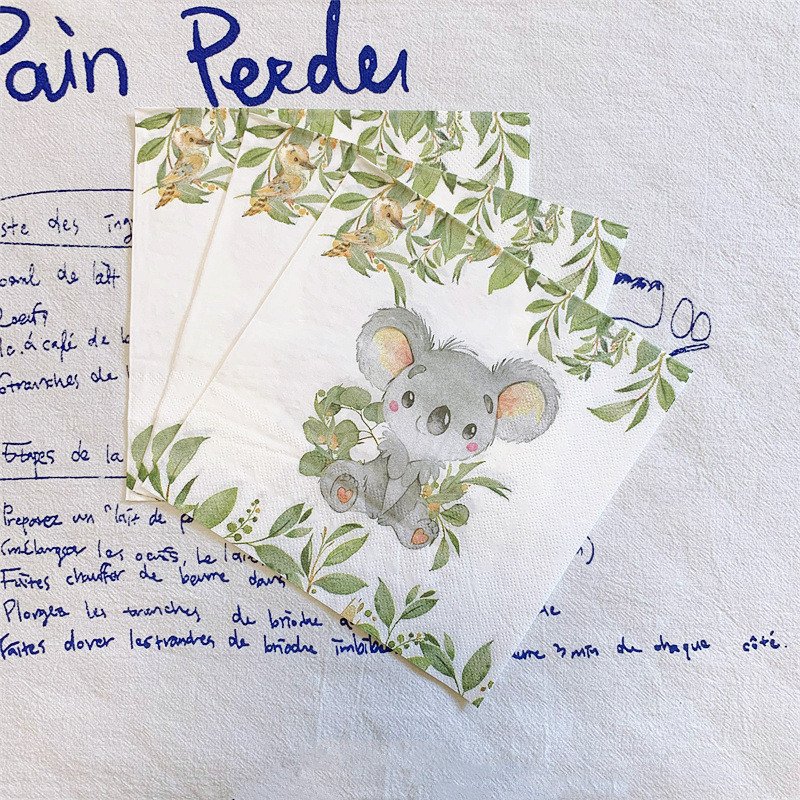 Pain Perdu
ste des ing
de lait
oeufs
c. à café de
tranches de
Etapes de la
Preparez un "lait de p
(mélanger les oeufs, le lai )
Faites chauffer de beurre dans
Plongez les tranches de brioche
Faites dorer les tranches de brioche imbibée urre 3 min de chaque côté.